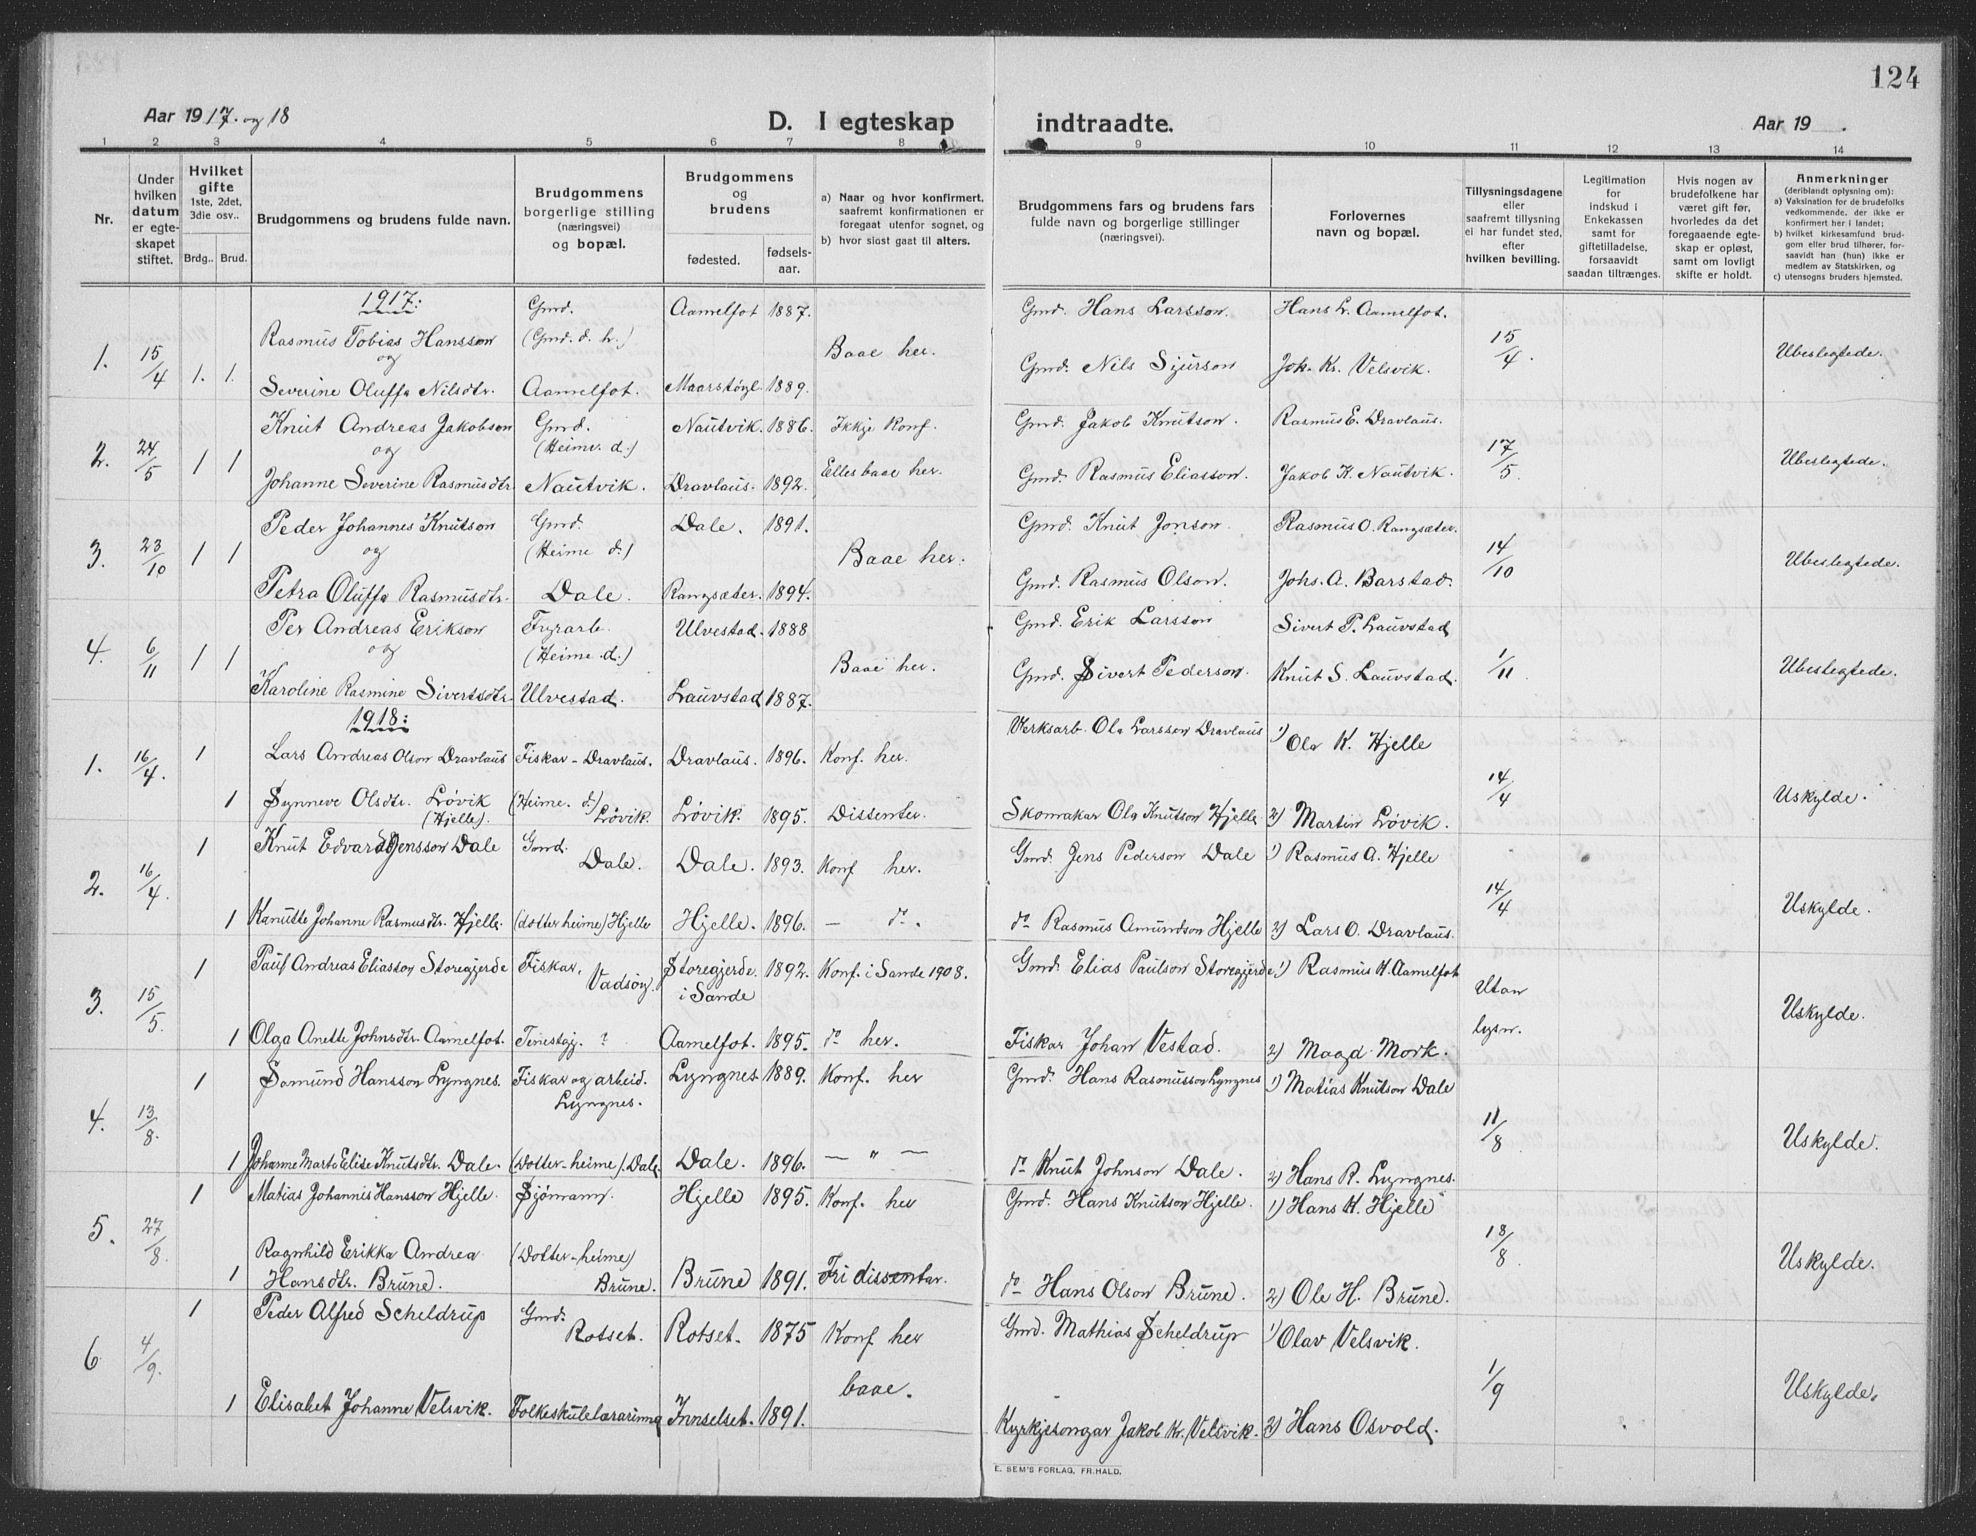 124
Aar 1917. og 18
D. I egteskap indtraadte.
Aar 19 .
1 2 3 4 5 6 7 8 9 10 11 12 13 14
Nr.
Under
hvilken
datum
er egte-
skapet
stiftet.
Hvilket
gifte
1ste, 2det,
3die osv..
Brdg.. Brud.
Brudgommens og brudens fulde navn.
Brudgommens
borgerlige stilling
(næringsvei)
og bopæl.
Brudgommens
og
brudens
fødested.
fødsels-
aar.
a) Naar og hvor konfirmert,
saafremt konfirmationen er
foregaat utenfor sognet, og
b) hvor sidst gaat til alters.
Brudgommens fars og brudens fars
fulde navn og borgerlige stillinger
(næringsvei).
Forlovernes
navn og bopæl.
Tillysningsdagene
eller
saafremt tillysning
ei har fundet sted,
efter
hvilken bevilling.
Legitimation
for
indskud i
Enkekassen
samt for
giftetilladelse,
forsaavidt
saadan tiltrænges.
Hvis nogen av
brudefolkene har
været gift før,
hvorledes da det
foregaaende egte-
skap er opløst,
samt om lovligt
skifte er holdt.
Anmerkninger
(deriblandt oplysning om):
a) Vaksination for de brudefolks
vedkommende, der ikke er
konfirmert her i landet;
b) hvilket kirkesamfund brud-
gom eller brud tilhører, for-
saavidt han (hun) ikke er
medlem av Statskirken, og
c) utensogns bruders hjemsted.
1917:
Rasmus Tobias Hansson Gmd. Aamelfot 1887. Gmd. Hans Larsson. Hans L. Aamelfot.
1. 15/4 1. 1. og (Gmd. d. h.) Baae her. 15/4. Ubeslegtede.
Severine Oluffa Nilsdtr. Aamelfot. Maarstøyl 1889. Gmd. Nils Sjurson Joh. Kr. Velsvik.
Knut Andreas Jakobson Gmd. Nautvik. 1886. Ikkje Konf. Gmd. Jakob Knutson. Rasmus E. Dravlaus.
2. 24/5 1 1 og (Heimv. d.) 17/5. Ubeslegtede.
Johanne Severine Rasmusdtr. Nautvik. Dravlaus. 1892. Elles baae her. Gmd. Rasmus Eliasson. Jakob K. Nautvik.
Peder Johannes Knutson Gmd. Dale. 1891. Gmd. Knut Jonson. Rasmus O. Rangsæter.
3. 23/10 1 1 og (Heime d.) Baae her. 14/10 Ubeslegtede.
Petra Oluffa Rasmusdtr. Dale. Rangsæter. 1894. Gmd. Rasmus Olson. Johs. A. Barstad.
Per Andreas Erikson Fyrarb. Ulvestad. 1888 Gmd. Erik Larsson Sivert P. Lauvstad
4. 6/11 1 1 og (Heime d.) Baae her. 1/11. Ubeslegtede.
Karoline Rasmine Sivertsdtr. Ulvestad. Lauvstad 1887. Gmd. Sivert Pederson. Knut S. Lauvstad.
1918:
1. 16/4. 1 Lars Andreas Olson Dravlaus Fiskar - Dravlaus. Dravlaus. 1896. Konf. her. Verksarb. Ola Larsson Dravlaus 1) Ola K. Hjelle 14/4 Uskylde.
1 Synneve Olsdtr. Løvik (Heime. d.) Løvik. Løvik. 1895. Dissenter. Skomakar Ola Knutson Hjelle 2) Martin Løvik.
(Hjelle).
2. 16/4. 1 Knut Edvard Jensson Dale Gmd. Dale. Dale. 1893. Konf her. Gmd. Jens Pederson Dale 1) Rasmus A. Hjelle 14/4 Uskylde.
1 Kanutte Johanne Rasmusdtr. Hjelle. (dotter heime) Hjelle Hjelle. 1896. - do. do Rasmus Amundson Hjelle 2) Lars O. Dravlaus.
3. 15/5. 1 Paul Andreas Eliasson Storegjerde Fiskar, Vadsøy. Storegjerde i Sande 1892. Konf. i Sande 1908. Gmd. Elias Paulson Storegjerde 1) Rasmus H. Aamelfot Utan lysn. Uskylde.
1 Olga Anette Johnsdtr. Aamelfot. Tenestgj. ? Aamelfot. 1895. do her. Fiskar Johan Vestad. 2) Magd Mork.
4. 13/8. 1 Samund Hansson Lyngnes. Fiskar og arbeid. Lyngnes. Lyngnes 1889. Konf. her Gmd. Hans Rasmusson Lyngnes 1) Matias Knutson Dale 11/8 Uskylde.
1 Johanne Marta Elise Knutsdtr. Dale. (Dotter-heime). Dale Dale. 1896. - " - do Knut Johnson Dale. 2) Hans R. Lyngnes.
5. 27/8. 1 Matias Johannis Hansson Hjelle. Sjømann. Hjelle 1895. Konf. her Gmd. Hans Knutson Hjelle. 1) Hans K. Hjelle 18/8. Uskylde.
1 Ragnhild Erikka Andrea Hansdtr. Brune. (Dotter-heime) Brune. Brune 1891. Fri dissentar. do Hans Olson Brune. 2) Ole H. Brune.
6 4/9. 1 Peder Alfred Scheldrup Gmd. Rotset. Rotset. 1875 Konf her Gmd. Mathias Scheldrup 1) Olav Velsvik. 1/9 Uskylde.
baae.
1 Elisabet Johanne Velsvik. Folkeskulelærarinna Innselset. 1891. Kyrkjesongar Jakob Kr. Velsvik. 2) Hans Osvold.
E. SEM'S FORLAG, FR.HALD.